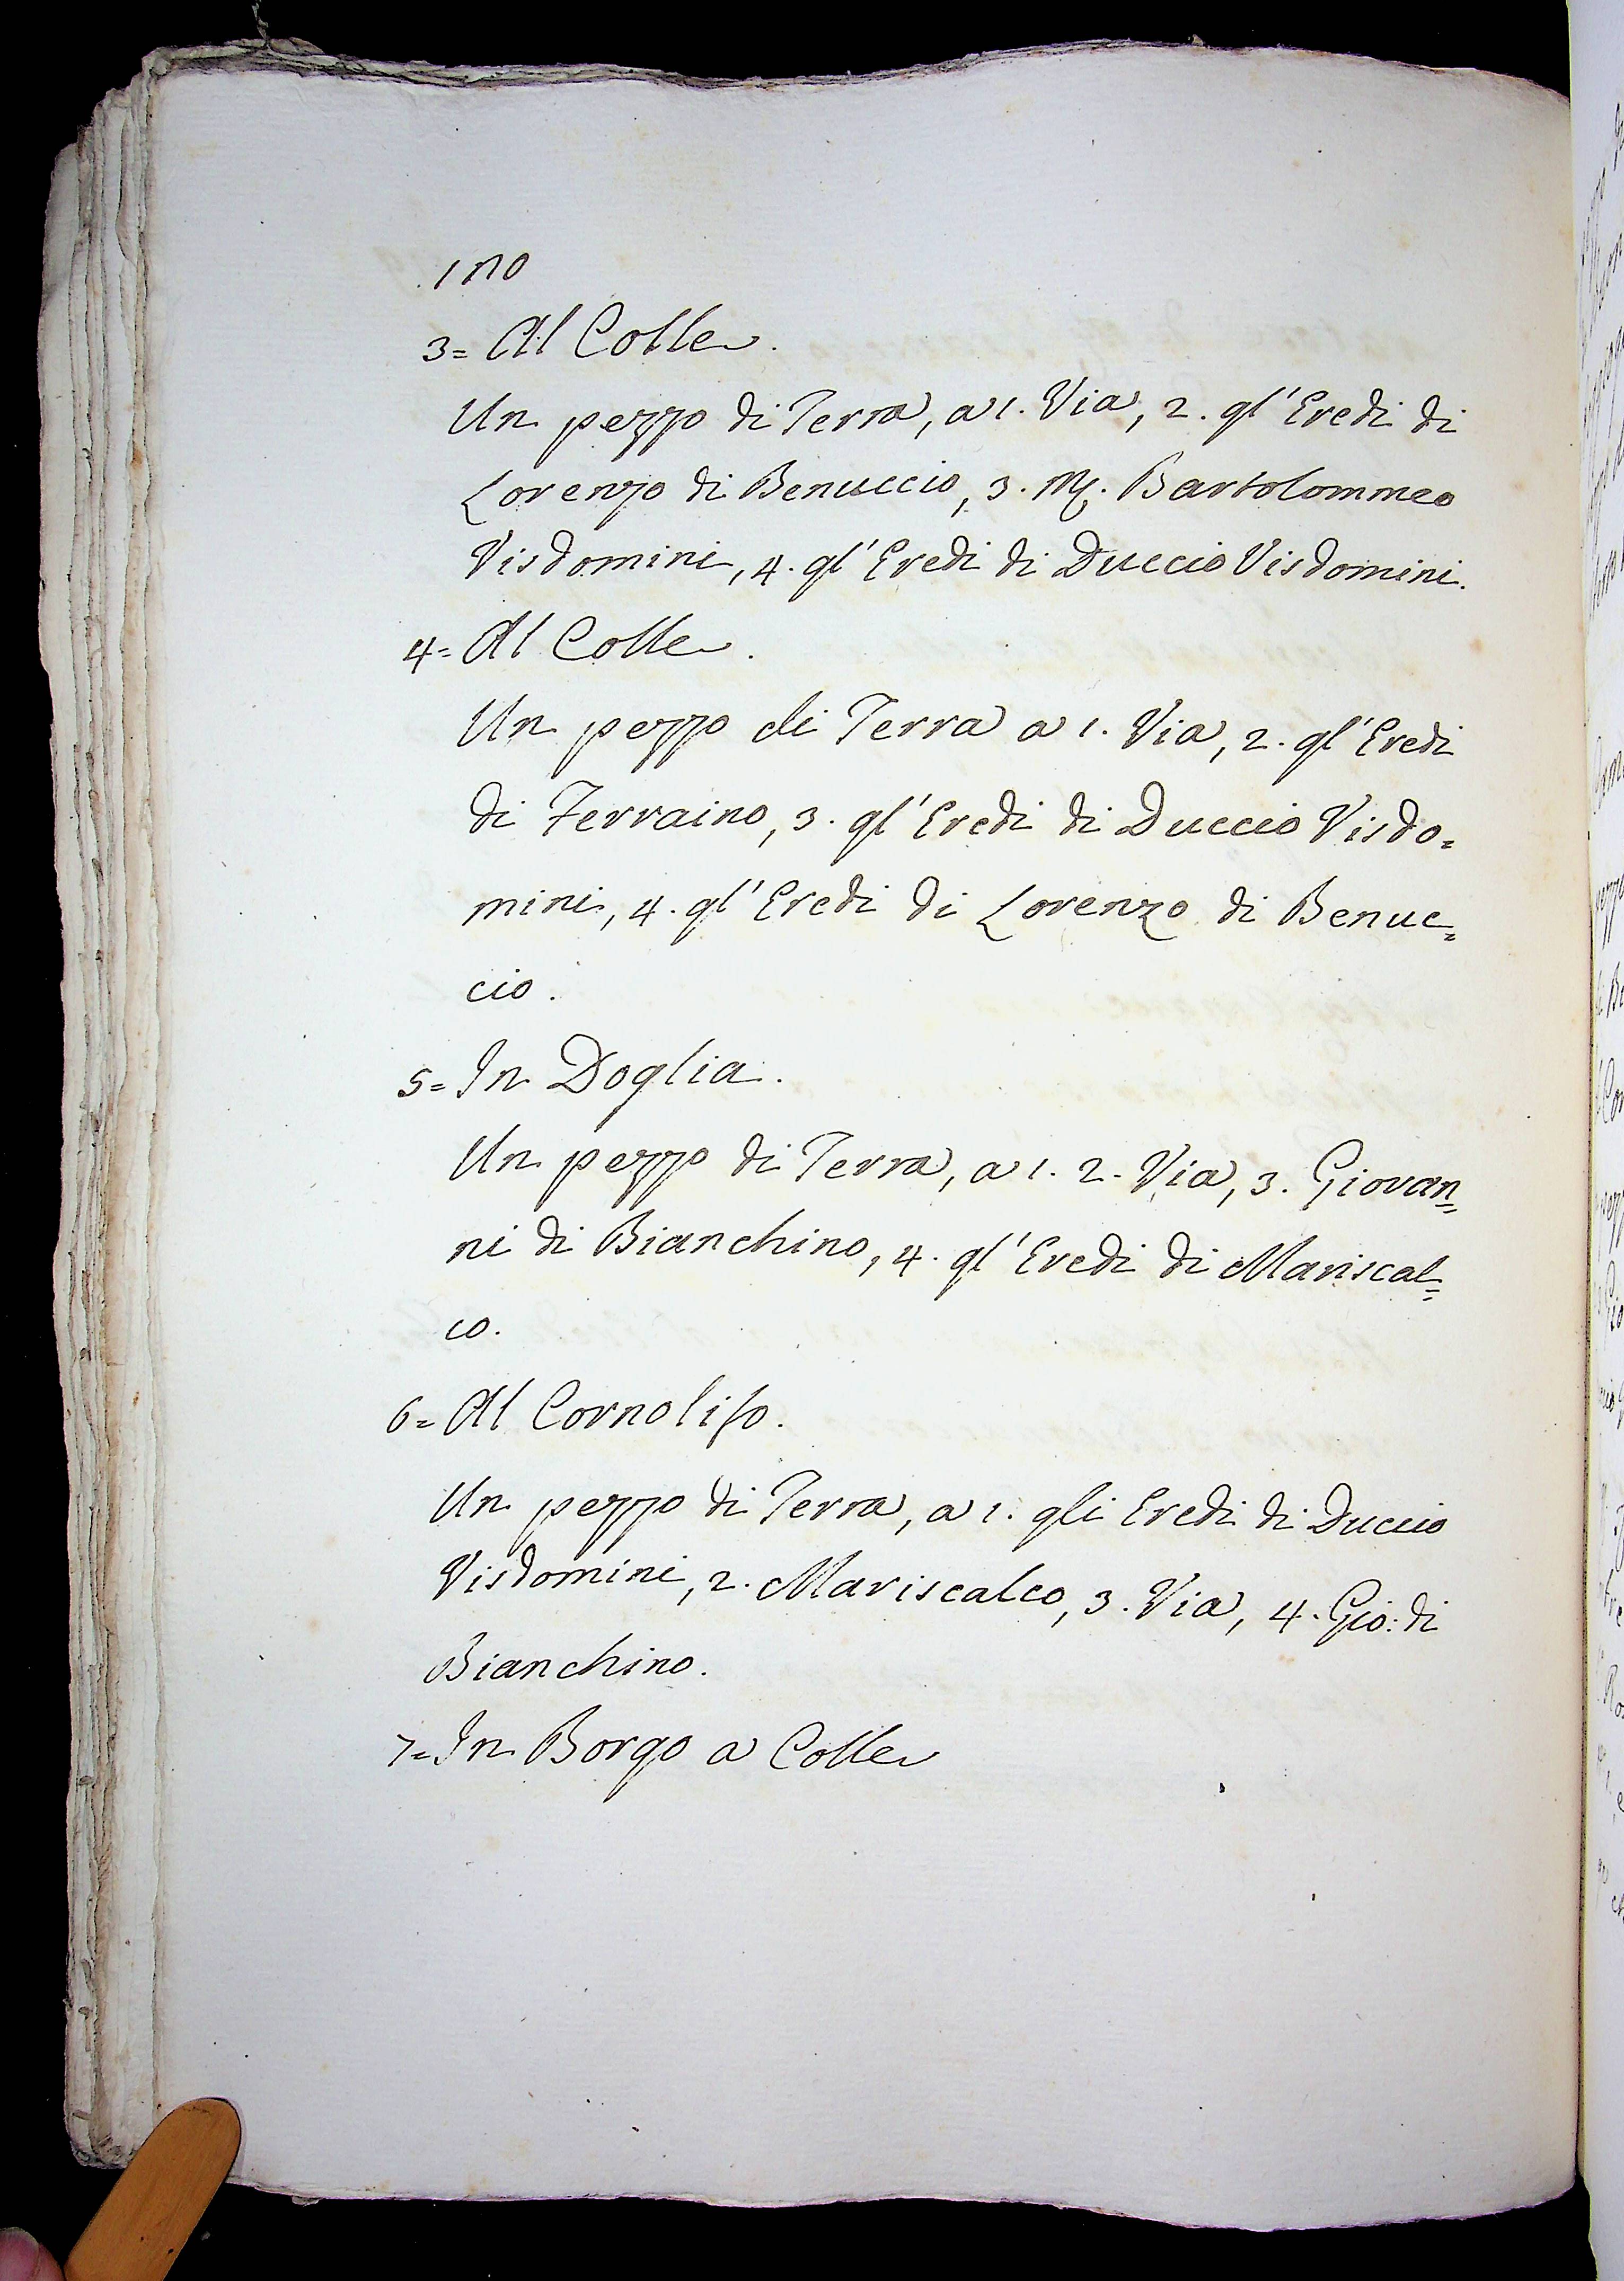 170
3= Al Colle.
Un pezzo di Terra, a 1. Via, 2. gl' Eredi di
Lorenzo di Benuccio, 3. M. Bartolommeo
Visdomini, 4. gl' Eredi di Duccio Visdomini.
4= Al Colle.
Un pezzo di Terra a 1. Via, 2. gl' Eredi
di Ferraino, 3. gl' Eredi di Duccio Visdo=
mini, 4. gl' Eredi di Lorenzo di Benuc=
cio.
5= In Doglia.
Un pezzo di Terra, a 1. 2. Via, 3. Giovan=
ni di Bianchino, 4. gl' Eredi di Mariscal=
co.
6= Al Cornoliso.
Un pezzo di Terra, a 1. gli Eredi di Duccio
Visdomini, 2. Mariscalco, 3. Via, 4. Gio: di
Bianchino.
7= In Borgo a Colle